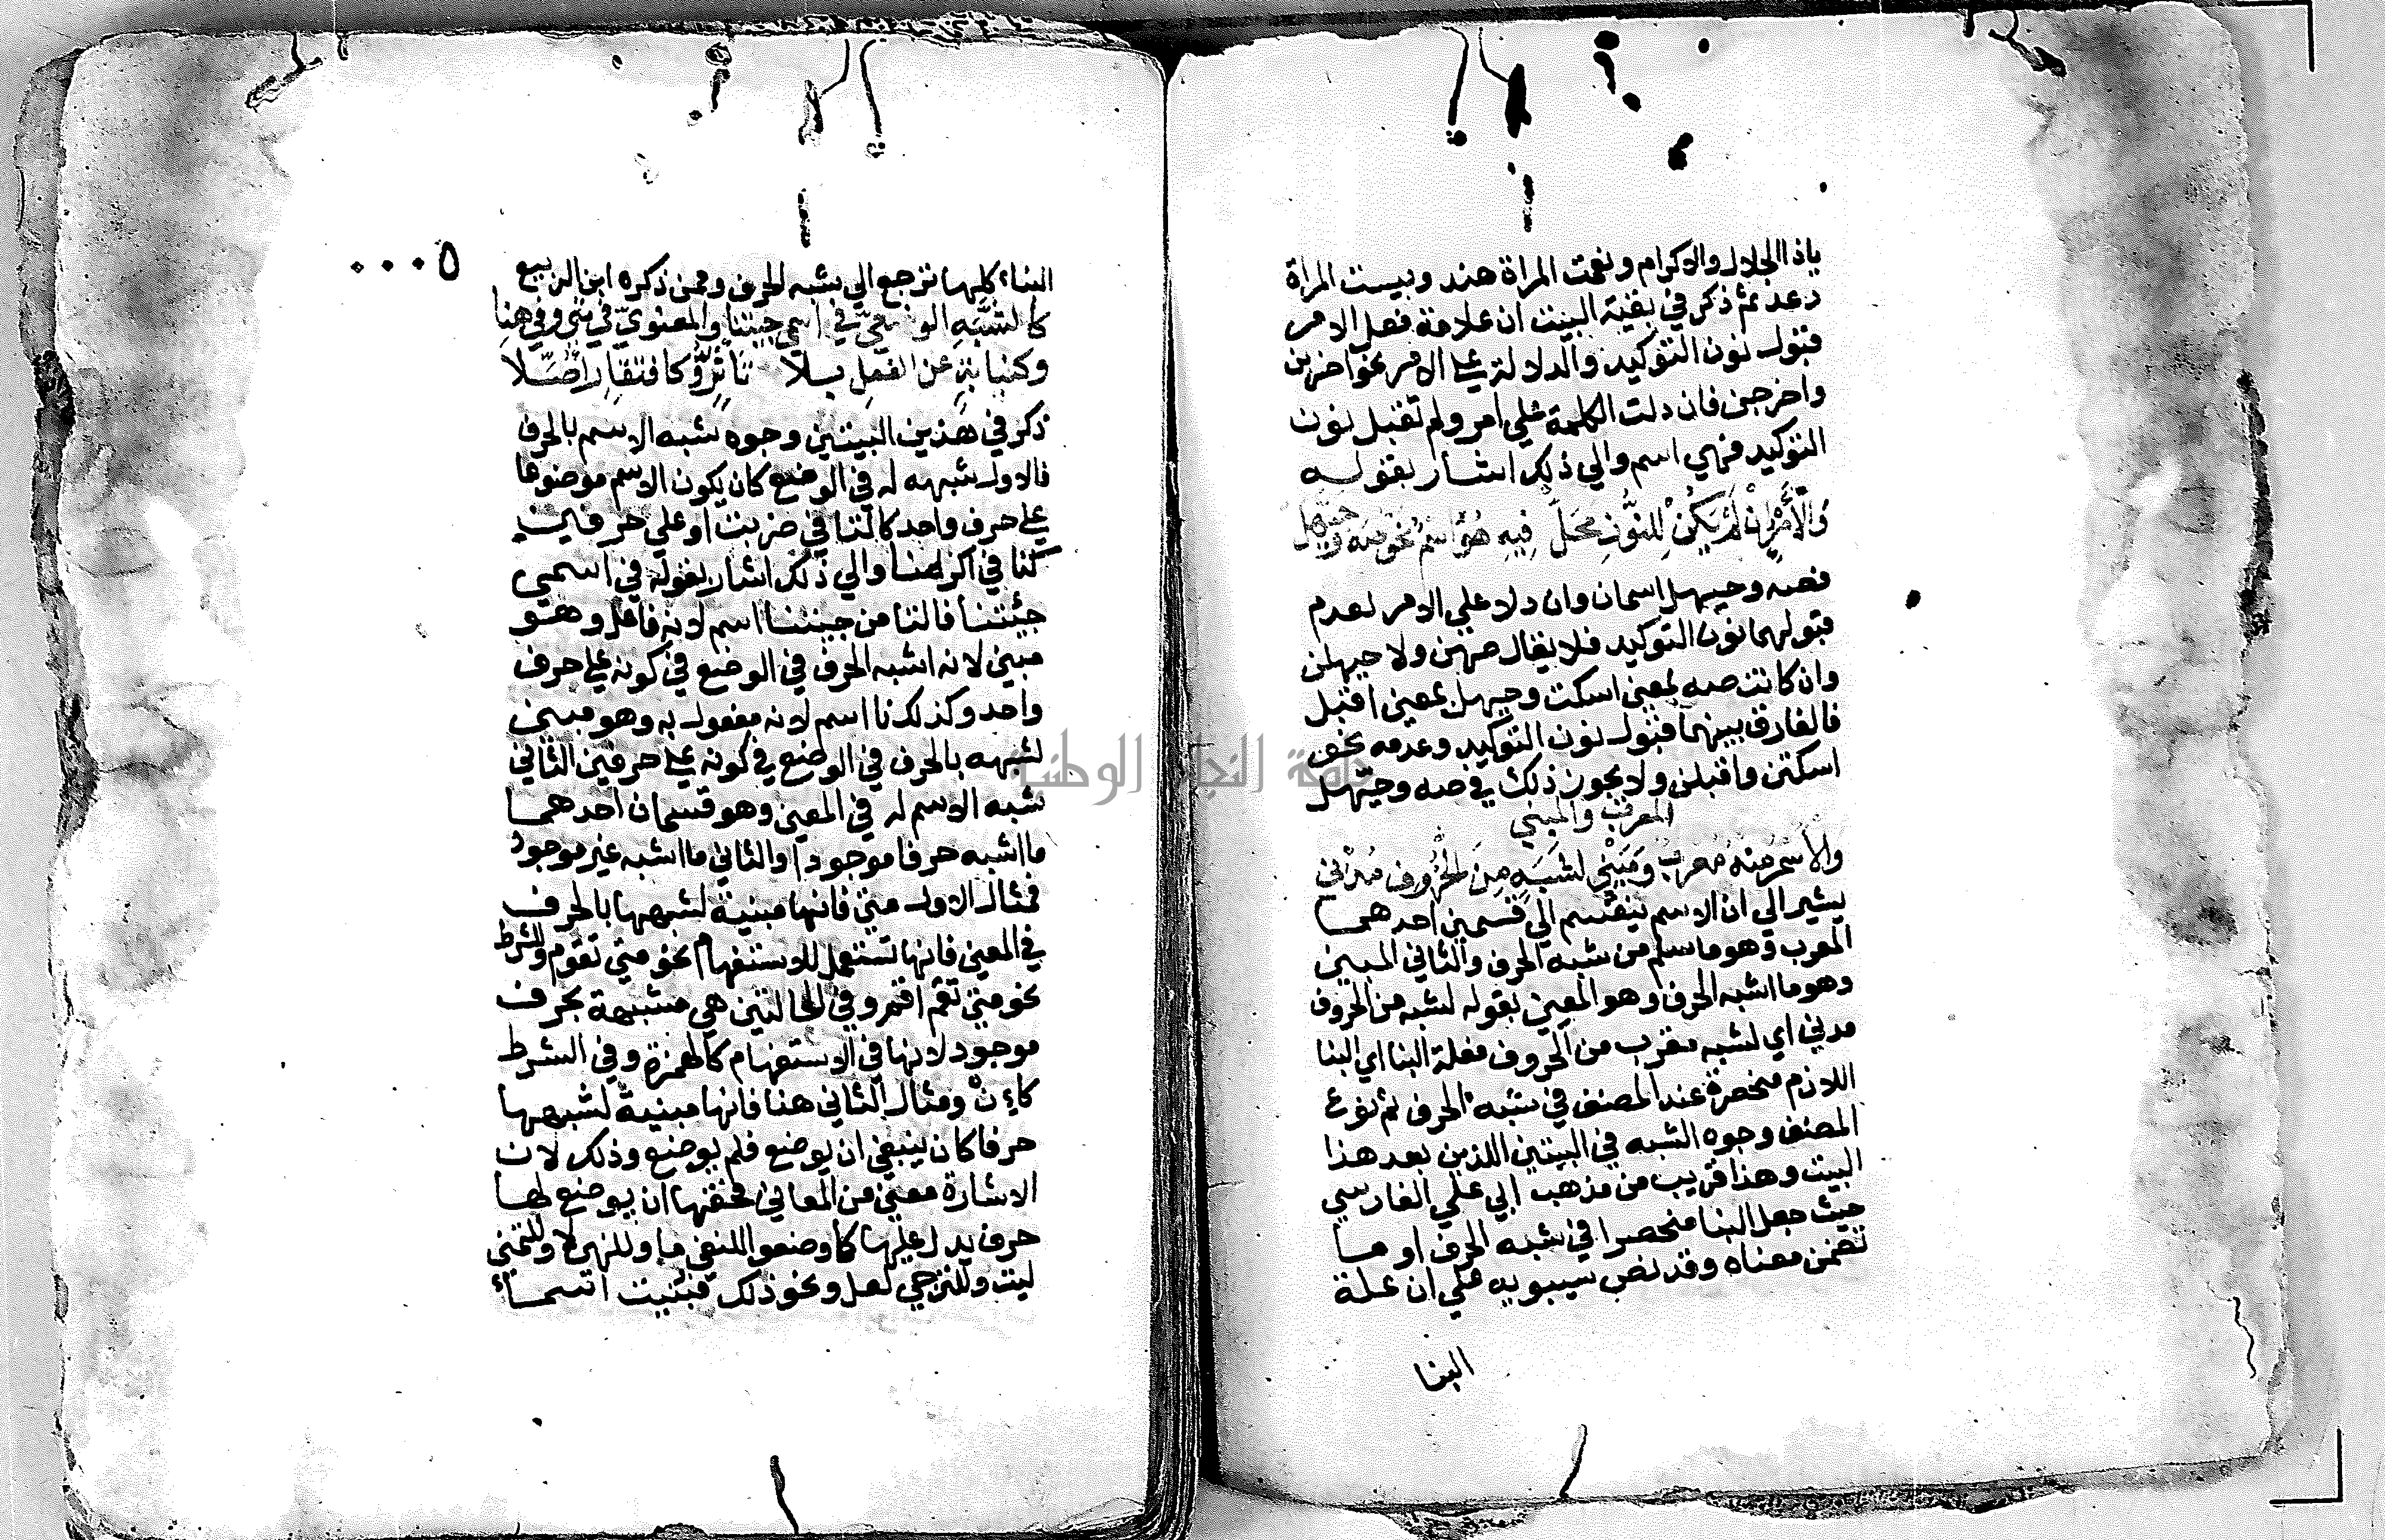 ياذا الجلال والاكرام ونعمت المراة هند وبيست المراة
دعد ثم ذكر في بقية البيت ان علامة فعل الامر
قبول نون التوكيد والدلالة على الامر نحو اضربن
واخرجن فان دلت الكلمة على امر ولم تقبل نون
التوكيد فهي اسم والي ذلك اشار بقوله
وَالْأَمْرُ اِنْ لَمْ يَكُنْ لِلنُّونِ مَحَلّ فِيهِ هُوَ اسْم نحو صَه وحَيَّهل
فصه وحيهل اسمان وان دلا علي الامر لعدم
قبولهما نون التوكيد فلا يقال صهن ولا حيهلن
وان كانت صه بمعني اسكت وحيهل بمعني اقبل
فالفارق بينهما قبول نون التوكيد وعدمه نحو
اسكتن واقبلن ولا يجوز ذلك في صه وحيّهل
المعرب والمبني
والاسم منه معرب ومَبْني لشَبَهٍ مِنَ الحُرُوف مُدْني
يشير الي ان الاسم ينقسم الي قسمين احدهما
المعرب وهو ما سلم من شبه الحرف والثاني المبني
وهو ما اشبه الحرف وهو المعني بقوله لشبه من الحروف
مدني اي لشبه مقرب من الحروف فعلة البنا اي البنا
اللازم منحصرة عند المصنف في شبه الحرف ثم نوع
المصنف وجوه الشبه في البيتين اللذين بعد هذا
البيت وهذا قريب من مذهب ابي علي الفارسي
حيث جعل البنا منحصرا في شبه الحرف او ما
تضمن معناه وقد نص سيبويه علي ان علة
البنا
٥٠٠٠
البناء كلها ترجع الي شبه الحرف وممن ذكره ابن الربيع
كالشَّبَهِ الوضعيّ في اسمي جئتنا والمعنويّ في متي وفي هنا
وكنيابةٍ عن الفعلِ بلا تأثُّرٍ وكافتقارٍ اُصّلا
ذكر في هذين البيتين وجوه شبه الاسم بالحرف
فالاول شبهه له في الوضع كان يكون الاسم موضوعا
على حرف واحد كالتا في ضربت او علي حرفين
كنا في اكرمنا والي ذلك اشار بقوله في اسمي
جئتنا فالتا من جيتنا اسم لانه فاعل وهو
مبني لانه اشبه الحرف في الوضع في كونه على حرف
واحد وكذلك نا اسم لانه مفعول به وهو مبني
لشبهه بالحرف في الوضع في كونه على حرفين الثاني
شبه الاسم له في المعني وهو قسمان احدهما
ما اشبه حرفا موجودا والثاني ما اشبه غير موجود
فمثال الاول متي فانها مبنية لشبهها بالحرف
في المعني فانها تستعمل للاستفهام نحو متي تقوم وللشرط
نحو متي تقم اقم وفي الحالتين هي مشبهة بحرف
موجود لانها في الاستفهام كالهمزة وفي الشرط
كاِنْ ومثال الثاني هنا فانها مبنية لشبهها
حرفا كان ينبغي ان يوضع فلم يوضع وذلك لان
الاشارة معني من المعاني فحقها ان يوضع لها
حرف يدل عليها كما وضعوا للنفي ما وللنهي لا وللتمني
ليت وللترجي لعل ونحو ذلك فبنيت اسماء
جامعة النجاح الوطنية